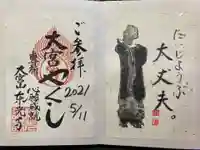 ご参拝
大宮やくし
2021
5/11
心願成就
大宮山東光寺
だいじょうぶ
大丈夫。